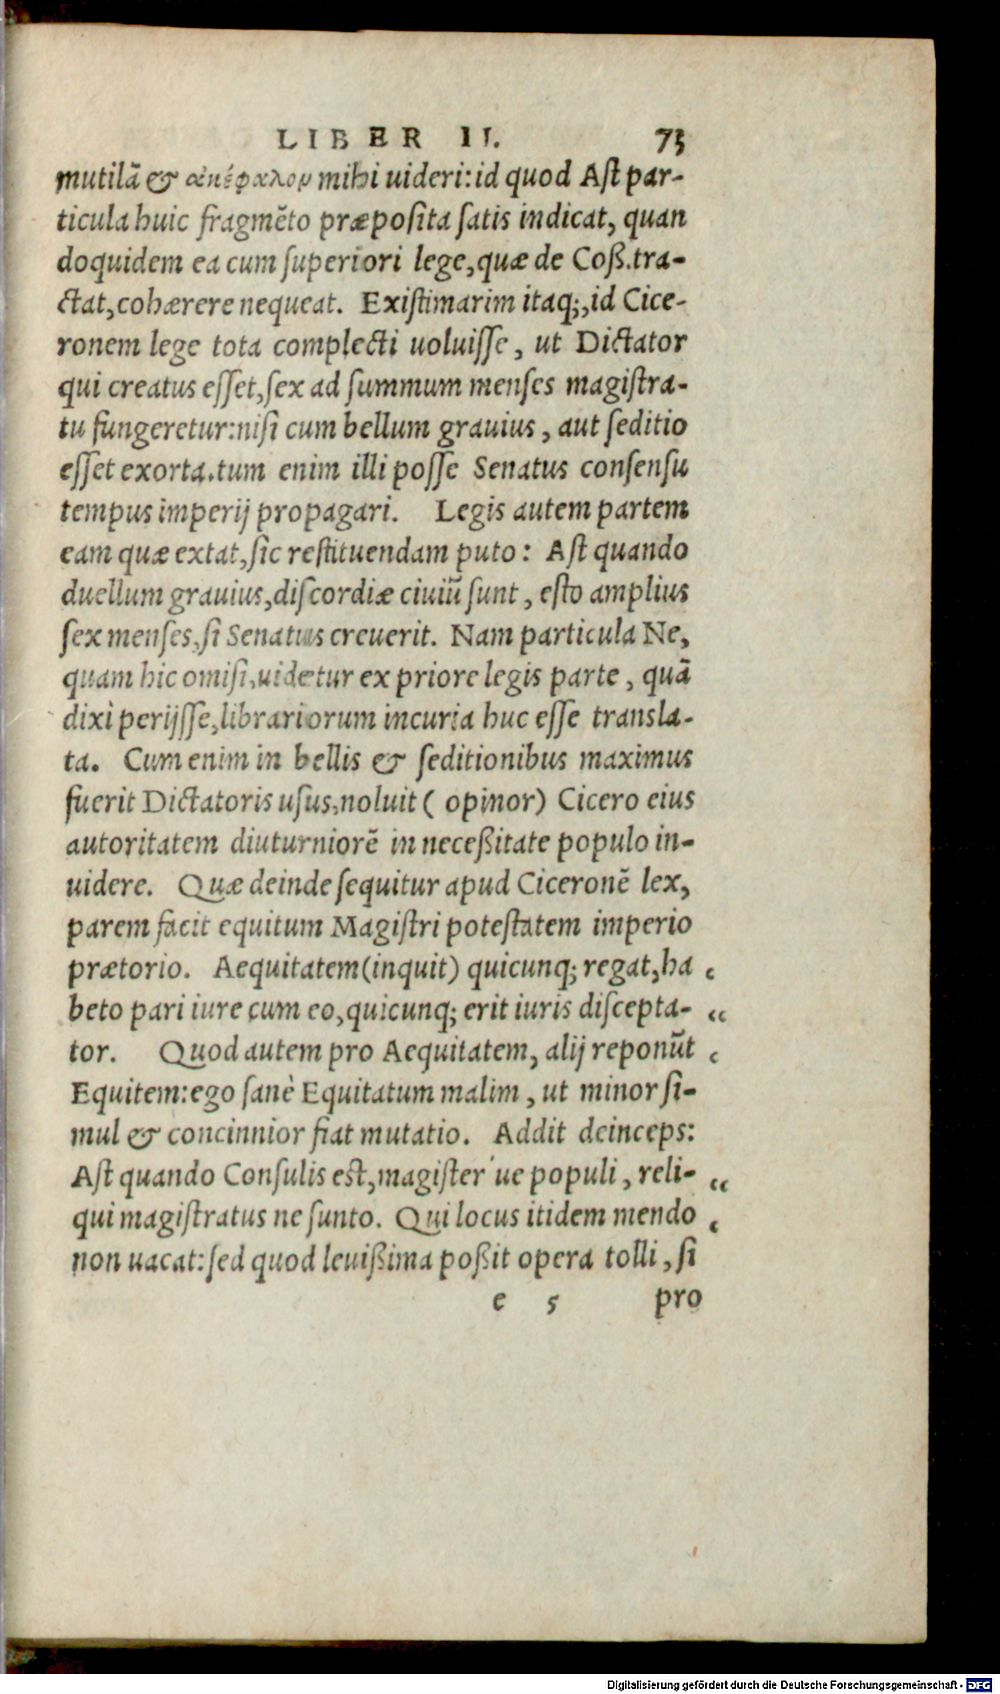 LIBER II. 73
mutilā & ἀκέφαλον mihi uideri: id quod Ast par-
ticula huic fragmēto præposita satis indicat, quan
doquidem ea cum superiori lege, quæ de Coß. tra-
ctat, cohærere nequeat. Existimarim itaq;, id Cice-
ronem lege tota complecti uoluisse, ut Dictator
qui creatus esset, sex ad summum menses magistra-
tu fungeretur: nisi cum bellum grauius, aut seditio
esset exorta. tum enim illi posse Senatus consensu
tempus imperij propagari. Legis autem partem
eam quæ extat, sic restituendam puto: Ast quando
duellum grauius, discordiæ ciuiū sunt, esto amplius
sex menses, si Senatus creuerit. Nam particula Ne,
quam hic omisi, uidetur ex priore legis parte, quā
dixi perijsse, librariorum incuria huc esse transla-
ta. Cum enim in bellis & seditionibus maximus
fuerit Dictatoris usus, noluit ( opinor) Cicero eius
autoritatem diuturniorē in neceßitate populo in-
uidere. Quæ deinde sequitur apud Ciceronē lex,
parem facit equitum Magistri potestatem imperio
prætorio. Aequitatem (inquit) quicunq; regat, ha
beto pari iure cum eo, quicunq; erit iuris discepta-
tor. Quod autem pro Aequitatem, alij reponūt
Equitem: ego sanè Equitatum malim, ut minor si-
mul & concinnior fiat mutatio. Addit deinceps:
Ast quando Consulis est, magister ́ue populi, reli-
qui magistratus ne sunto. Qui locus itidem mendo
non uacat: sed quod leuißima poßit opera tolli, si
e 5 pro
Digitalisierung gefördert durch die Deutsche Forschungsgemeinschaft - DFG